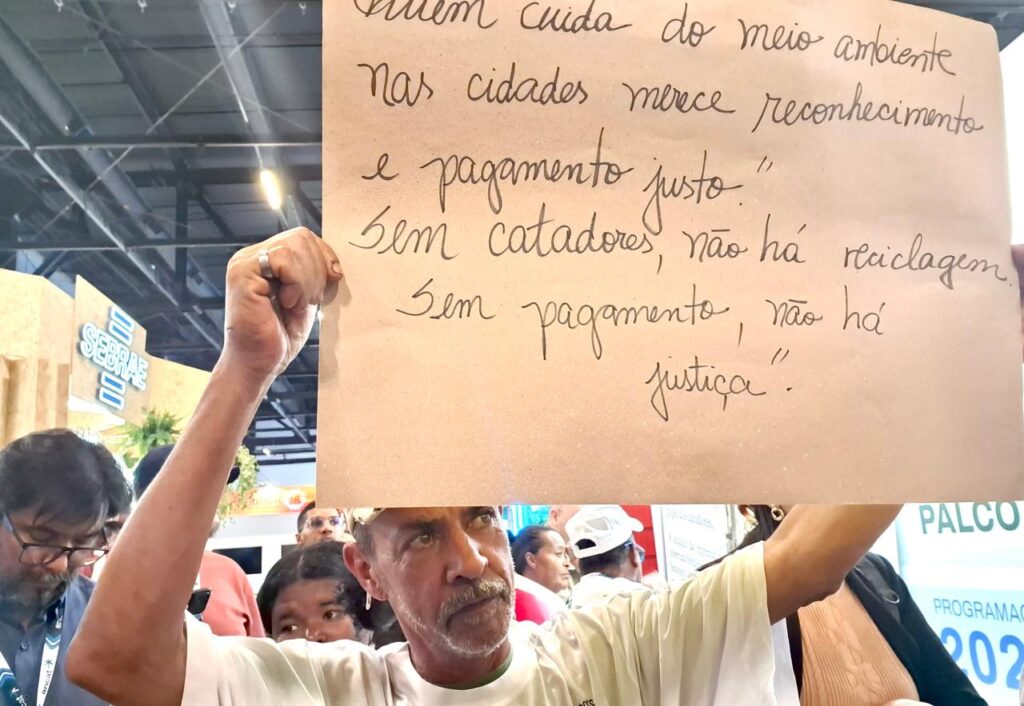 Quem cuida do meio ambiente
nas cidades merece reconhecimento
e pagamento justo."
Sem catadores, não há reciclagem.
Sem pagamento, não há
justiça".
SEBRAE
PALCO
PROGRAMAÇ
202